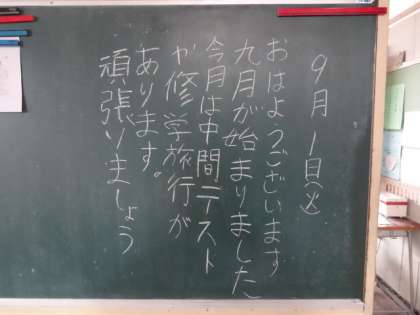 9月1日(火)
おはようございます
九月が始まりました
今月は中間テスト
や修学旅行が
あります。
頑張りましょう